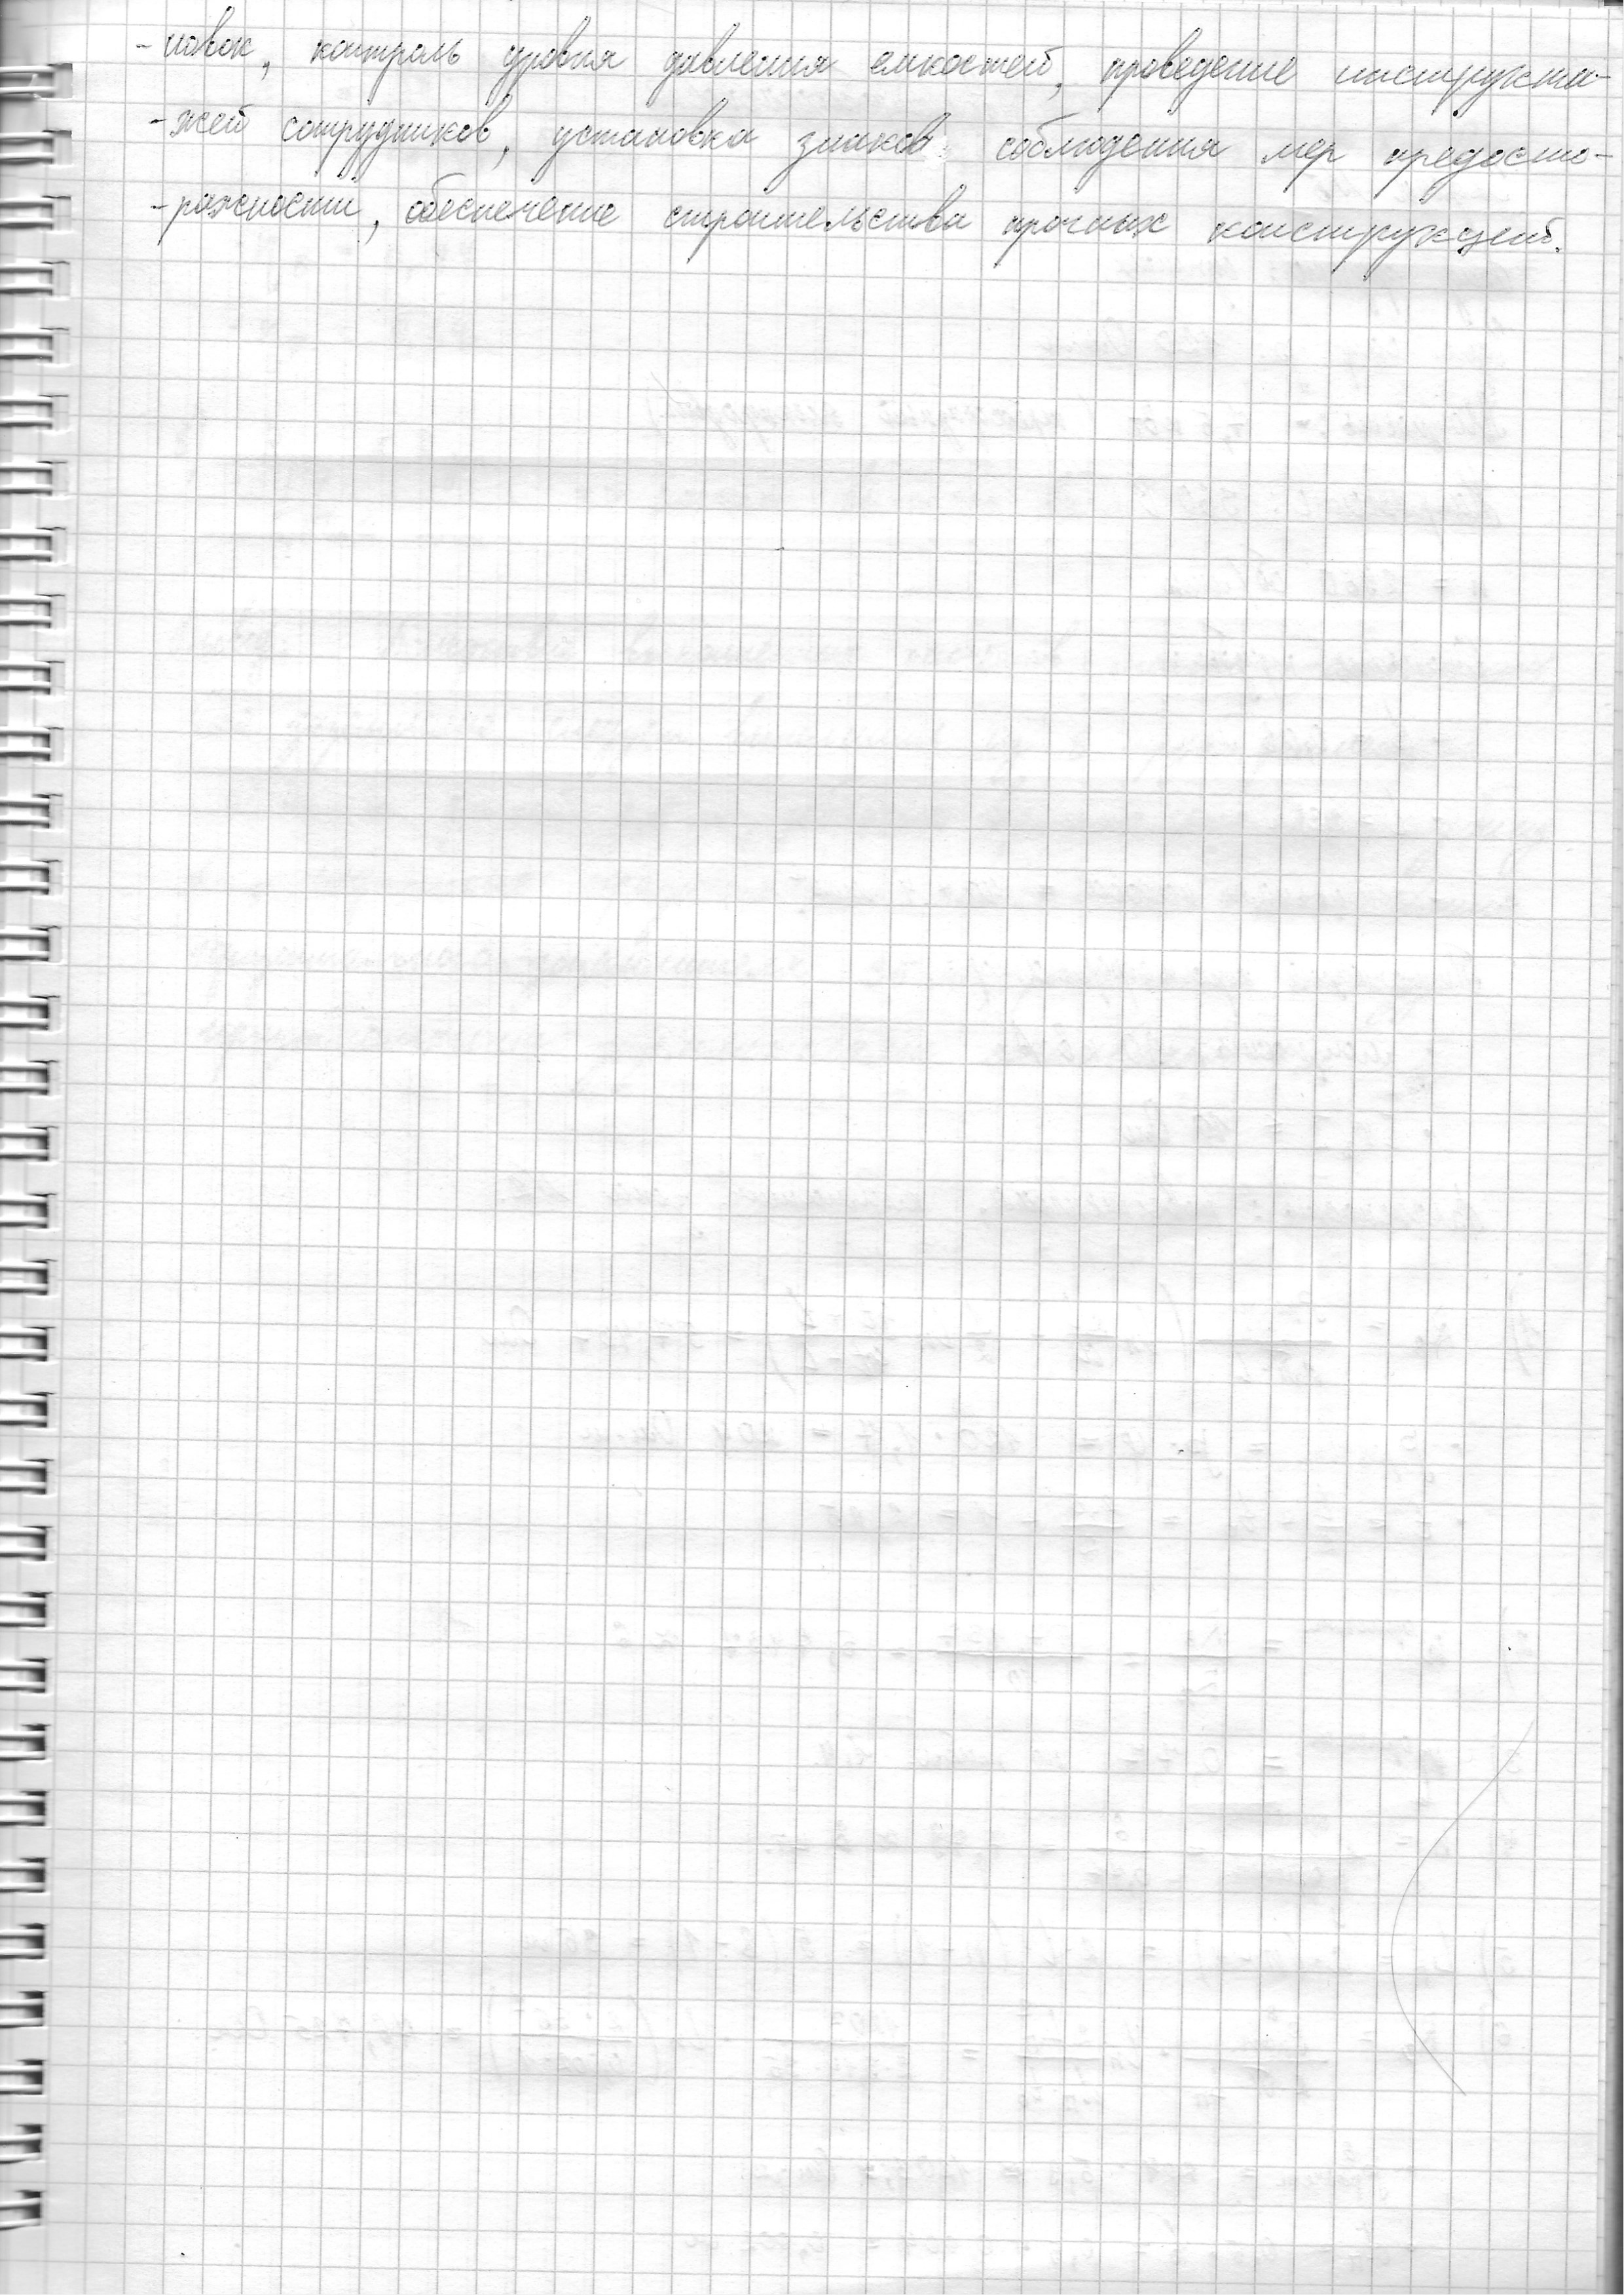 -новок, контроль уровня давления емкостей, проведение инструкта-
-жей сотрудников, установка знаков соблюдения мер предосто-
-рожности, обеспечение строительства прочных конструкций.